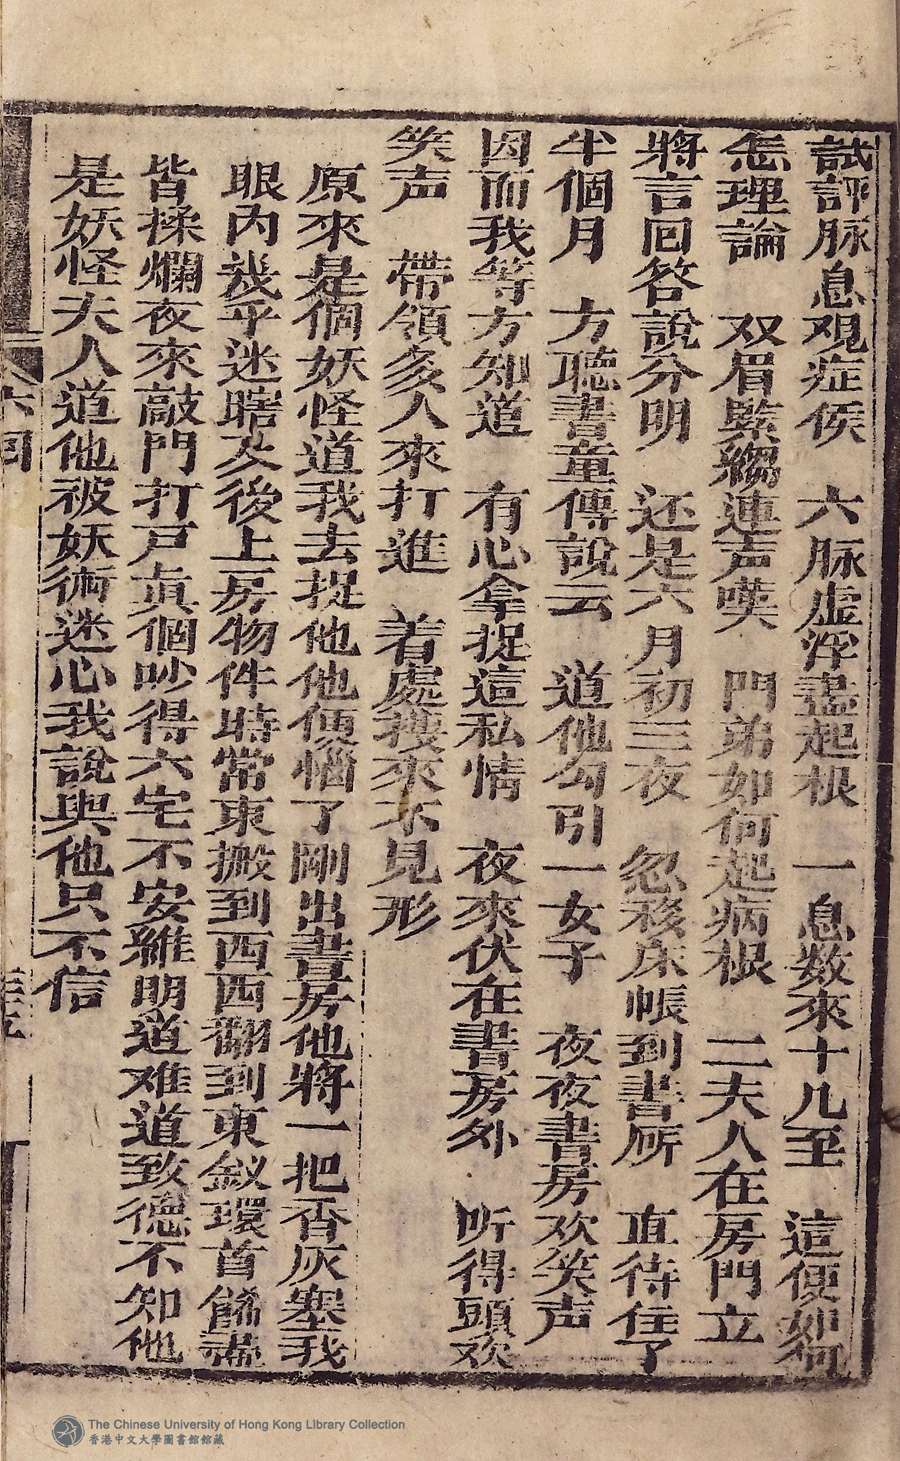 試評脉息观症侯　六脉虚浮盡起根　一息数來十几至　這便如何
怎理論　双眉緊縐連声嘆　門弟如何起病根　二夫人在房門立
將言回答說分明　还是六月初三夜　忽移床帳到書所　直待住了
半個月　方聽書童傳說云　道他勾引一女子　夜夜書房欢笑声
因而我等方知道　有心拿捉這私情　夜來伏在書房外　听得頭欢
笑声　帶領多人來打進　着處搜來不見形
原來是個妖怪道我去捉他他便惱了剛出書房他將一把香灰塞我
眼内幾乎迷瞎又後上房物件時常東搬到西西翻到東釵環首餙盡
皆揉爛夜來敲門打戸真個吵得六宅不安維明道难道致德不知他
是妖怪夫人道他被妖術迷心我說與他只不信
六囘
The Chinese University of Hong Kong Library Collection
香港中文大學圖書館館藏